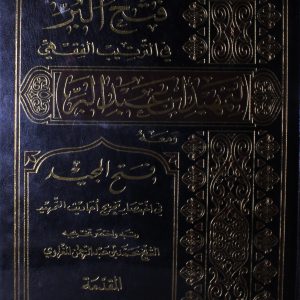 فتح البر
في الترتيب الفقهي
لتمهيد ابن عبد البر
ومعه
فتح المجيد
في اختصار تخريج أحاديث التمهيد
رتبه واختصر تخريجه
الشيخ محمد بن عبد الرحمن المغراوي
المقدمة